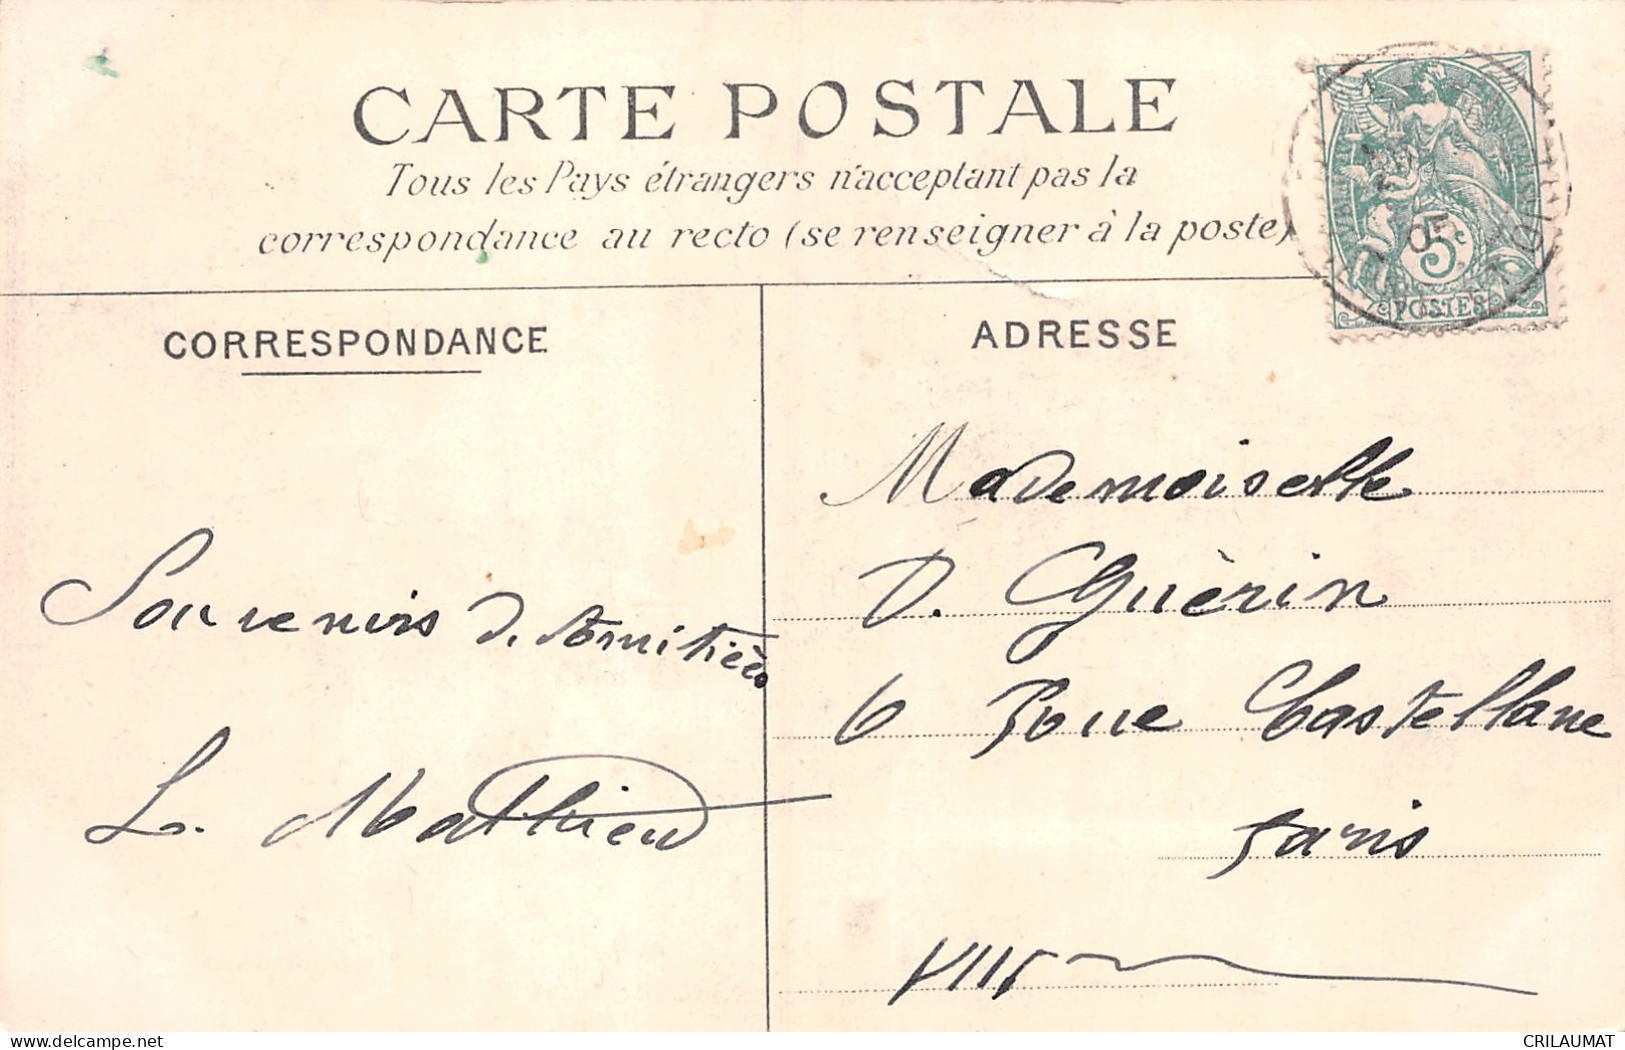 CARTE POSTALE
Tous les Pays étrangers n'acceptent pas la
correspondance au recto (se renseigner à la poste)
CORRESPONDANCE
ADRESSE
5c
POSTES
05
Souvenirs d'Amitiés
L. Mathieu
Mademoiselle
D. Guèrin
6 Rue Castellane
Paris
VIII
delcampe.net
CRILAUMAT